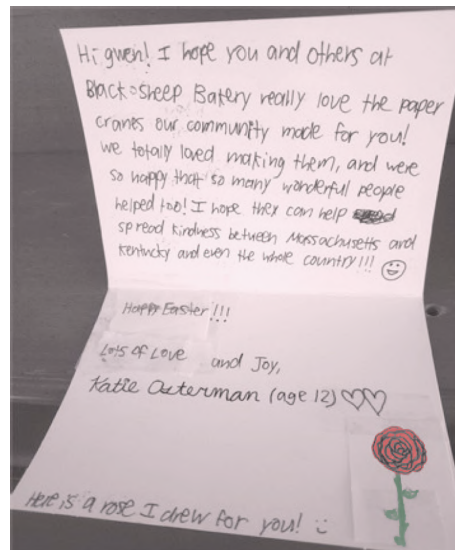 Hi gwen! I hope you and others at
Black Sheep Bakery really love the paper
cranes our community made for you!
we totally loved making them, and were
so happy that so many wonderful people
helped too! I hope they can help
spread kindness between Massachusetts and
Kentucky and even the whole country!!!
Happy Easter!!!
Lots of Love and Joy,
Katie Osterman (age 12)
Here is a rose I drew for you!